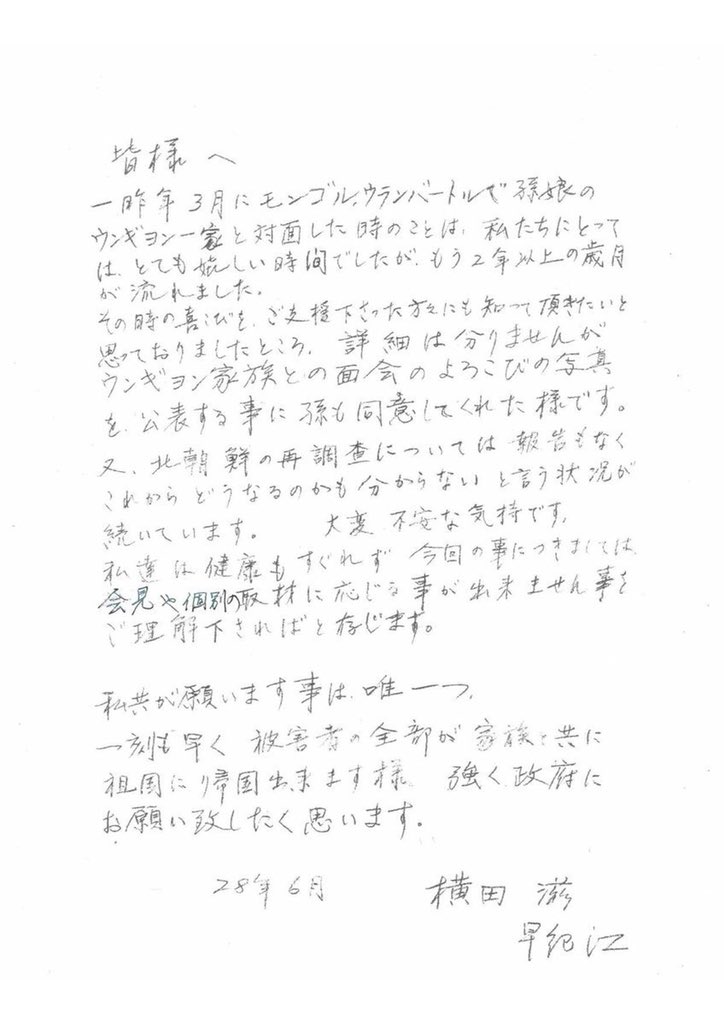 皆様へ
一昨年3月にモンゴル、ウランバートルで孫娘の
ウンギヨン一家と対面した時のことは、私たちにとって
は、とても嬉しい時間でしたが、もう2年以上の歳月
が流れました。
その時の喜こびを、ご支援下さった方々にも知って頂きたいと
思っておりましたところ、詳細は分りませんが
ウンギヨン家族との面会のよろこびの写真
を、公表する事に孫も同意してくれた様です。
又、北朝鮮の再調査については報告もなく
これからどうなるのかも分からないと言う状況が
続いています。 大変不安な気持です。
私達は健康もすぐれず 今回の事につきましては
会見や個別の取材に応じる事が出来ません事を
ご理解下さればと存じます。
私共が願います事は、唯一つ、
一刻も早く 被害者の全部が家族と共に
祖国に帰国出来ます様 強く政府に
お願い致したく思います。
28年6月 横田 滋
早紀江